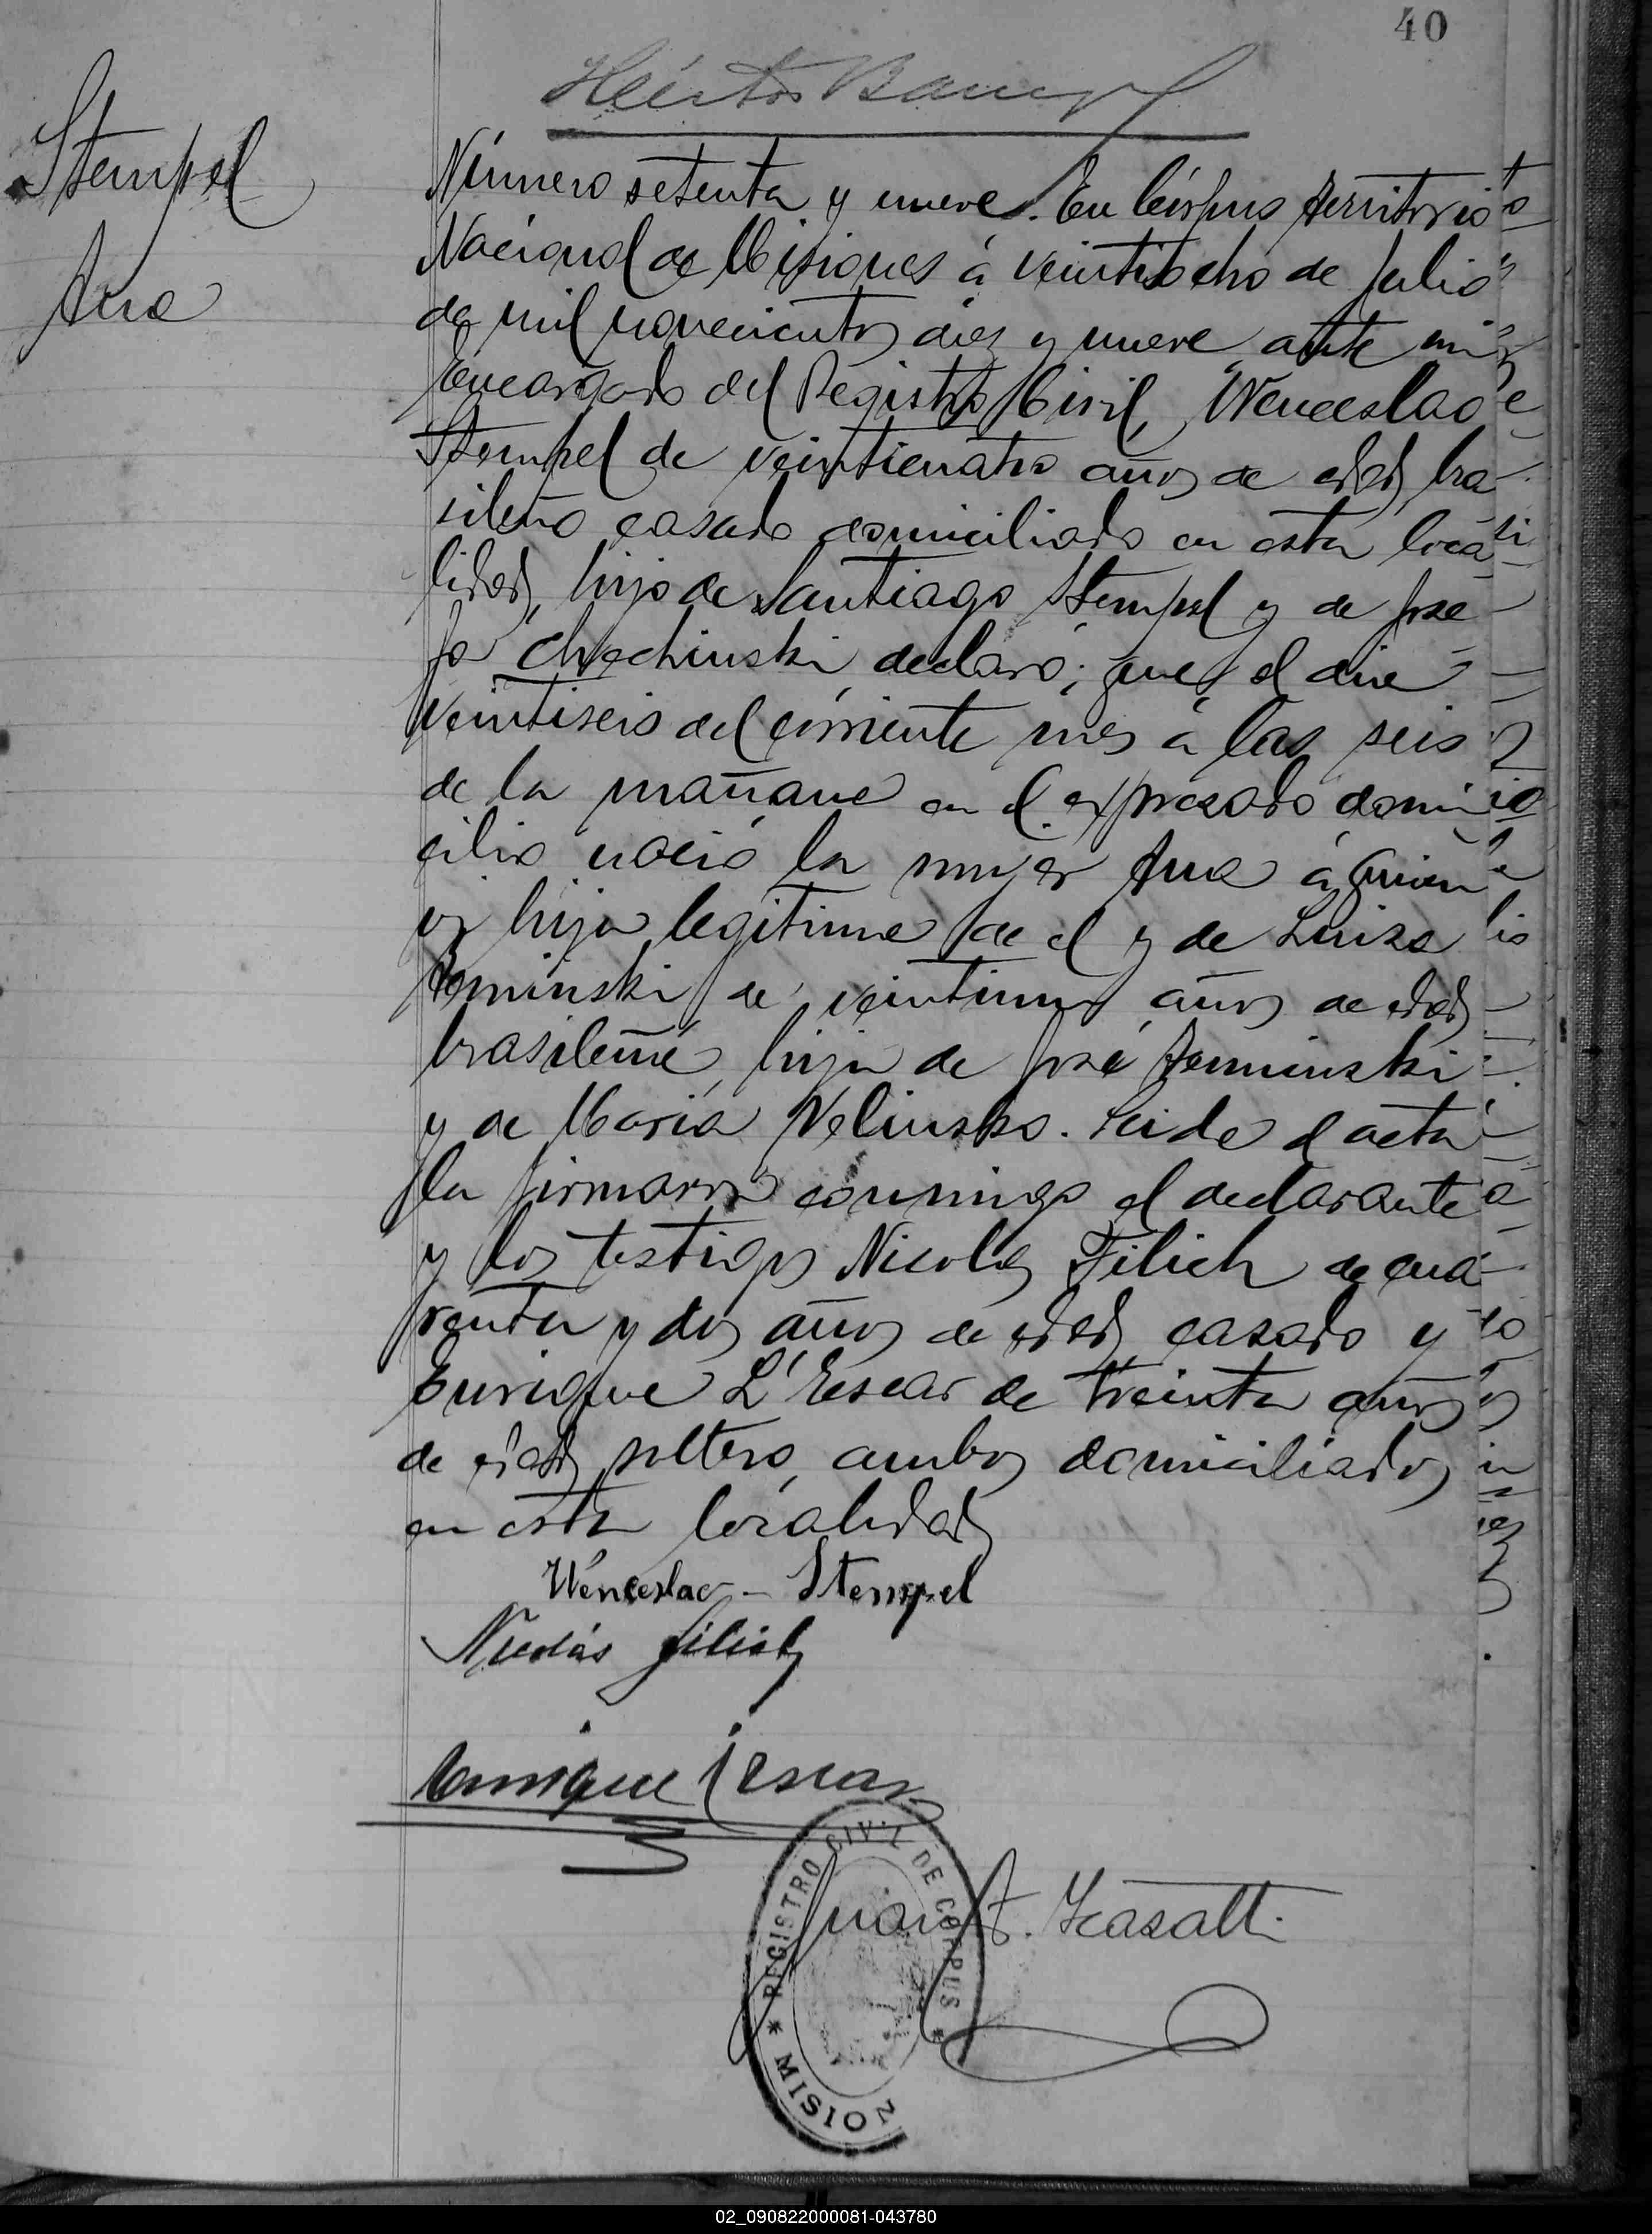 40
Héctor
Stempel
Ana
Número setenta y nueve. En Córpus Territorio
Nacional de Misiones á veintiocho de Julio
de mil novecientos diez y nueve ante mi
Encargado del Registro Civil, Wenceslao
Stempel de veinticuatro años de edad, bra
sileño casado domiciliado en esta loca
lidad, hijo de Santiago Stempel y de Jose
fa Chechinski declaró; que el dia
veintiseis del corriente mes á las seis
de la mañana en el expresado domi
cilio nació la mujer Ana á quien
es hija legitima de el y de Luisa
de veintiun años de edad
brasileña, hija de José
y de Maria Velinska. Leida el acta
la firmaron conmigo el declarante
y los testigos Nicolas Filich de cua
renta y dos años de edad casado y
Enrique L'Escar de treinta años
de edad soltero, ambos domiciliados
en esta localidad
Wenceslao - Stempel
Nicolás Filich
Enrique
REGISTRO CIVIL DE CORPUS
* MISION
Juan A.
02_090822000081-043780